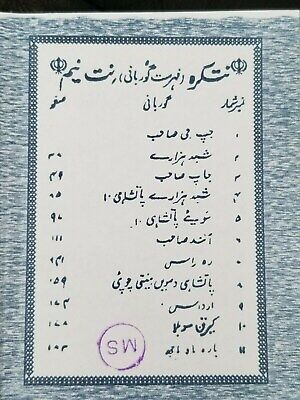 تتکرہ (فہرست گوربانی) نت نیم
نمبر شمار گوربانی صفحہ
۱ جپ جی صاحب
۲ شبد ہزارے ۳۸
۳ جاپ صاحب ۴۹
۴ شبد ہزارے پاتشاہی ۱۰ ۸۵
۵ سویئے پاتشاہی ۱۰ ۹۷
۶ آنند صاحب ۱۱۱
۷ رہ راس ۱۴۱
۸ پاتشاہی دسویں بینتی چوپئی ۱۵۹
۹ ارداس ۱۷۴
۱۰ کیرتن سوہلا ۱۷۸
۱۱ بارہ ماہ مانجھ ۱۸۳
MS